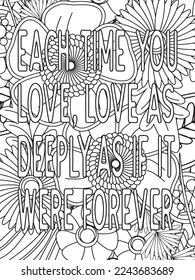 EACH TIME YOU
LOVE, LOVE AS
DEEPLY AS IF IT
WERE FOREVER
shutterstock.com · 2243683689